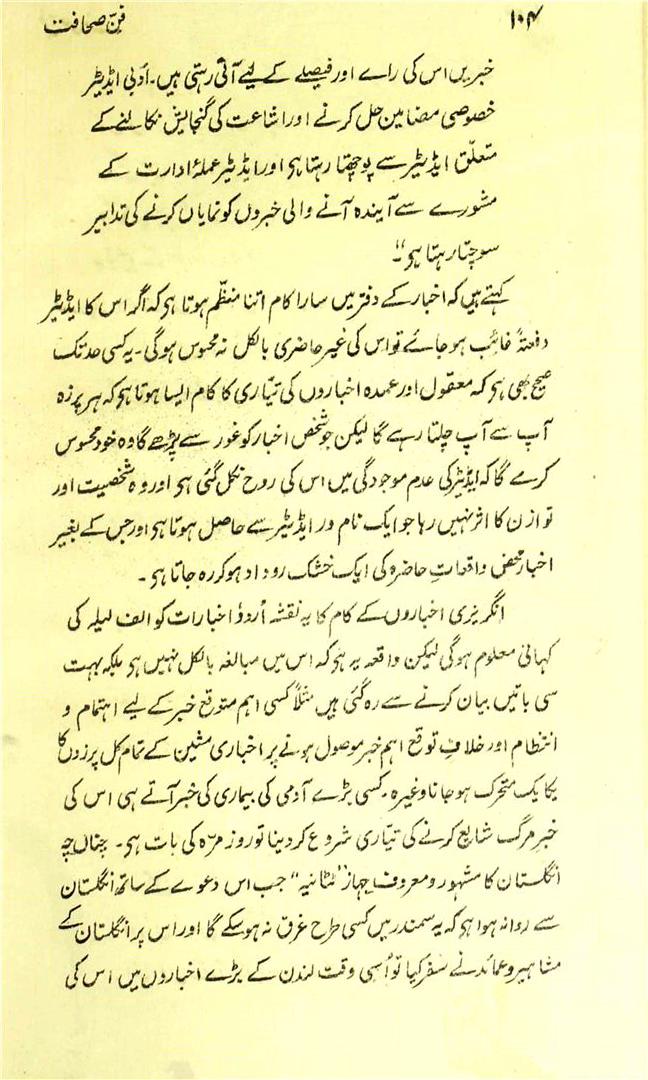 ۱۰۴ فنِّ صحافت
خبریں اس کی راے اور فیصلے کے لیے آتی رہتی ہیں۔ ادبی ایڈیٹر
خصوصی مضامین حل کرنے اور اشاعت کی گنجایش نکالنے کے
متعلّق ایڈیٹر سے پوچھتا رہتا ہو اور ایڈیٹر عملۂ ادارت کے
مشورے سے آیندہ آنے والی خبروں کو نمایاں کرنے کی تدابیر
سوچتا رہتا ہو"۔
کہتے ہیں کہ اخبار کے دفتر میں سارا کام اتنا منظّم ہوتا ہو کہ اگر اس کا ایڈیٹر
دفعتہً غائب ہو جائے تو اس کی غیر حاضری بالکل نہ محسوس ہوگی۔ یہ کسی حد تک
صحیح بھی ہو کہ معقول اور عمدہ اخباروں کی تیّاری کا کام ایسا ہوتا ہو کہ ہر پرزہ
آپ سے آپ چلتا رہے گا لیکن جو شخص اخبار کو غور سے پڑھے گا وہ خود محسوس
کرے گا کہ ایڈیٹر کی عدم موجودگی میں اس کی روح نکل گئی ہو اور وہ شخصیت اور
توازن کا اثر نہیں رہا جو ایک نام ور ایڈیٹر سے حاصل ہوتا ہو اور جس کے بغیر
اخبار محض واقعاتِ حاضرہ کی ایک خشک روداد ہو کر رہ جاتا ہو۔
انگریزی اخباروں کے کام کا یہ نقشہ اُردؤ اخبارات کو الف لیلہ کی
کہانی معلوم ہوگی لیکن واقعہ یہ ہو کہ اس میں مبالغہ بالکل نہیں ہو بلکہ بہت
سی باتیں بیان کرنے سے رہ گئی ہیں مثلاً کسی اہم متوقع خبر کے لیے اہتمام و
انتظام اور خلافِ توقع اہم خبر موصول ہونے پر اخباری مشین کے تمام کل پرزوں کا
یکایک متحرک ہو جانا وغیرہ۔ کسی بڑے آدمی کی بیماری کی خبر آتے ہی اس کی
خبرِ مرگ شایع کرنے کی تیّاری شروع کر دینا تو روز مرّہ کی بات ہو۔ چناں چہ
انگلستان کا مشہور و معروف جہاز "ٹٹانیہ" جب اس دعوے کے ساتھ انگلستان
سے روانہ ہوا ہو کہ یہ سمندر میں کسی طرح غرق نہ ہو سکے گا اور اس پر انگلستان کے
مشاہیر و عمائد نے سفر کیا تو اُسی وقت لندن کے بڑے اخباروں میں اس کی